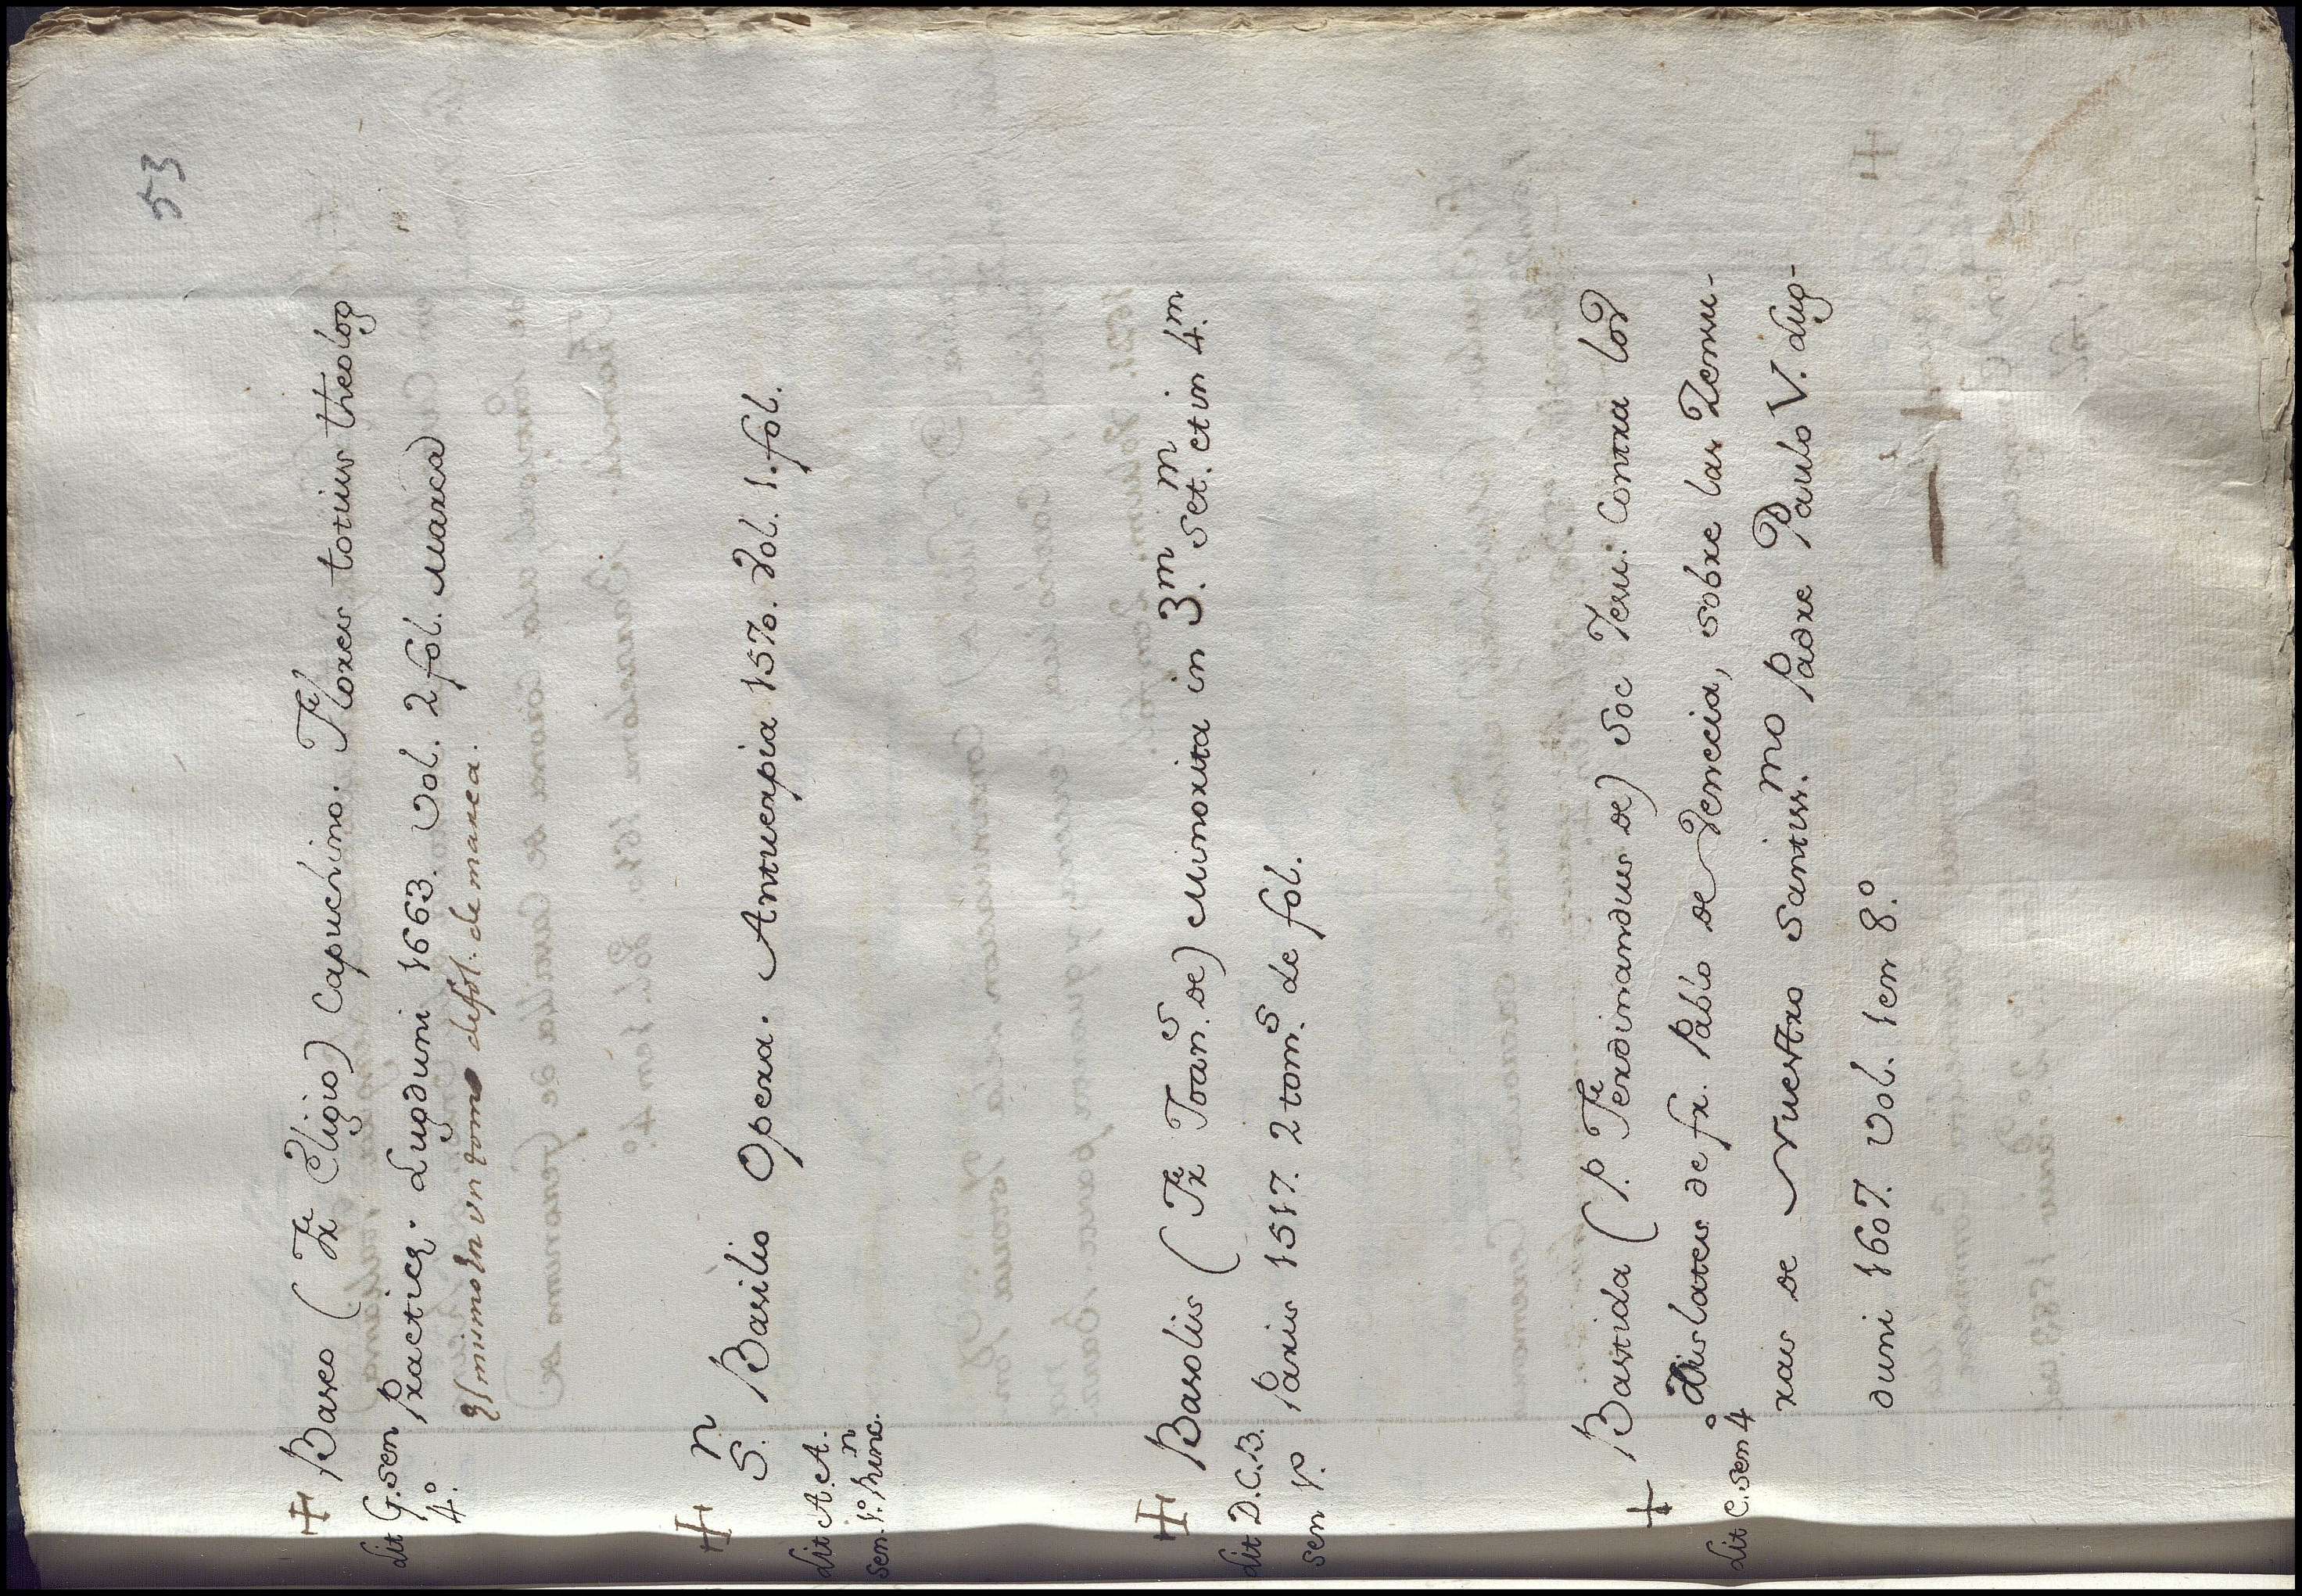 53
‡ Baseo (Fr Eligio) Capuchino. Flores totius theolog
Lit G. sen 4.º
Practicę. Lugduni 1663. Vol. 2 fol. Marca
El mismo en un tomo de fol. de marca.
‡ S.n Basilio Opera. Antuerpia 1570. Vol. 1. fol.
Lit A. A.
sen. 1.º Rinc.n
‡ Basolis (Fr Ioan.s de) Minorita in 3.m Set.m et in 4.m
Lit D. C. B.
sen 1º.
Paris 1517. 2 tom.s de fol.
† Bastida (P. Ferdinandus de) Soc Iesu. Contra los
Lit C. sen 4º
Dislates de fr. Pablo de Venecia, sobre las Zensu-
ras de Nuestro Santiss.mo Padre Paulo V. Lug-
duni 1607. Vol. 1 en 8.º